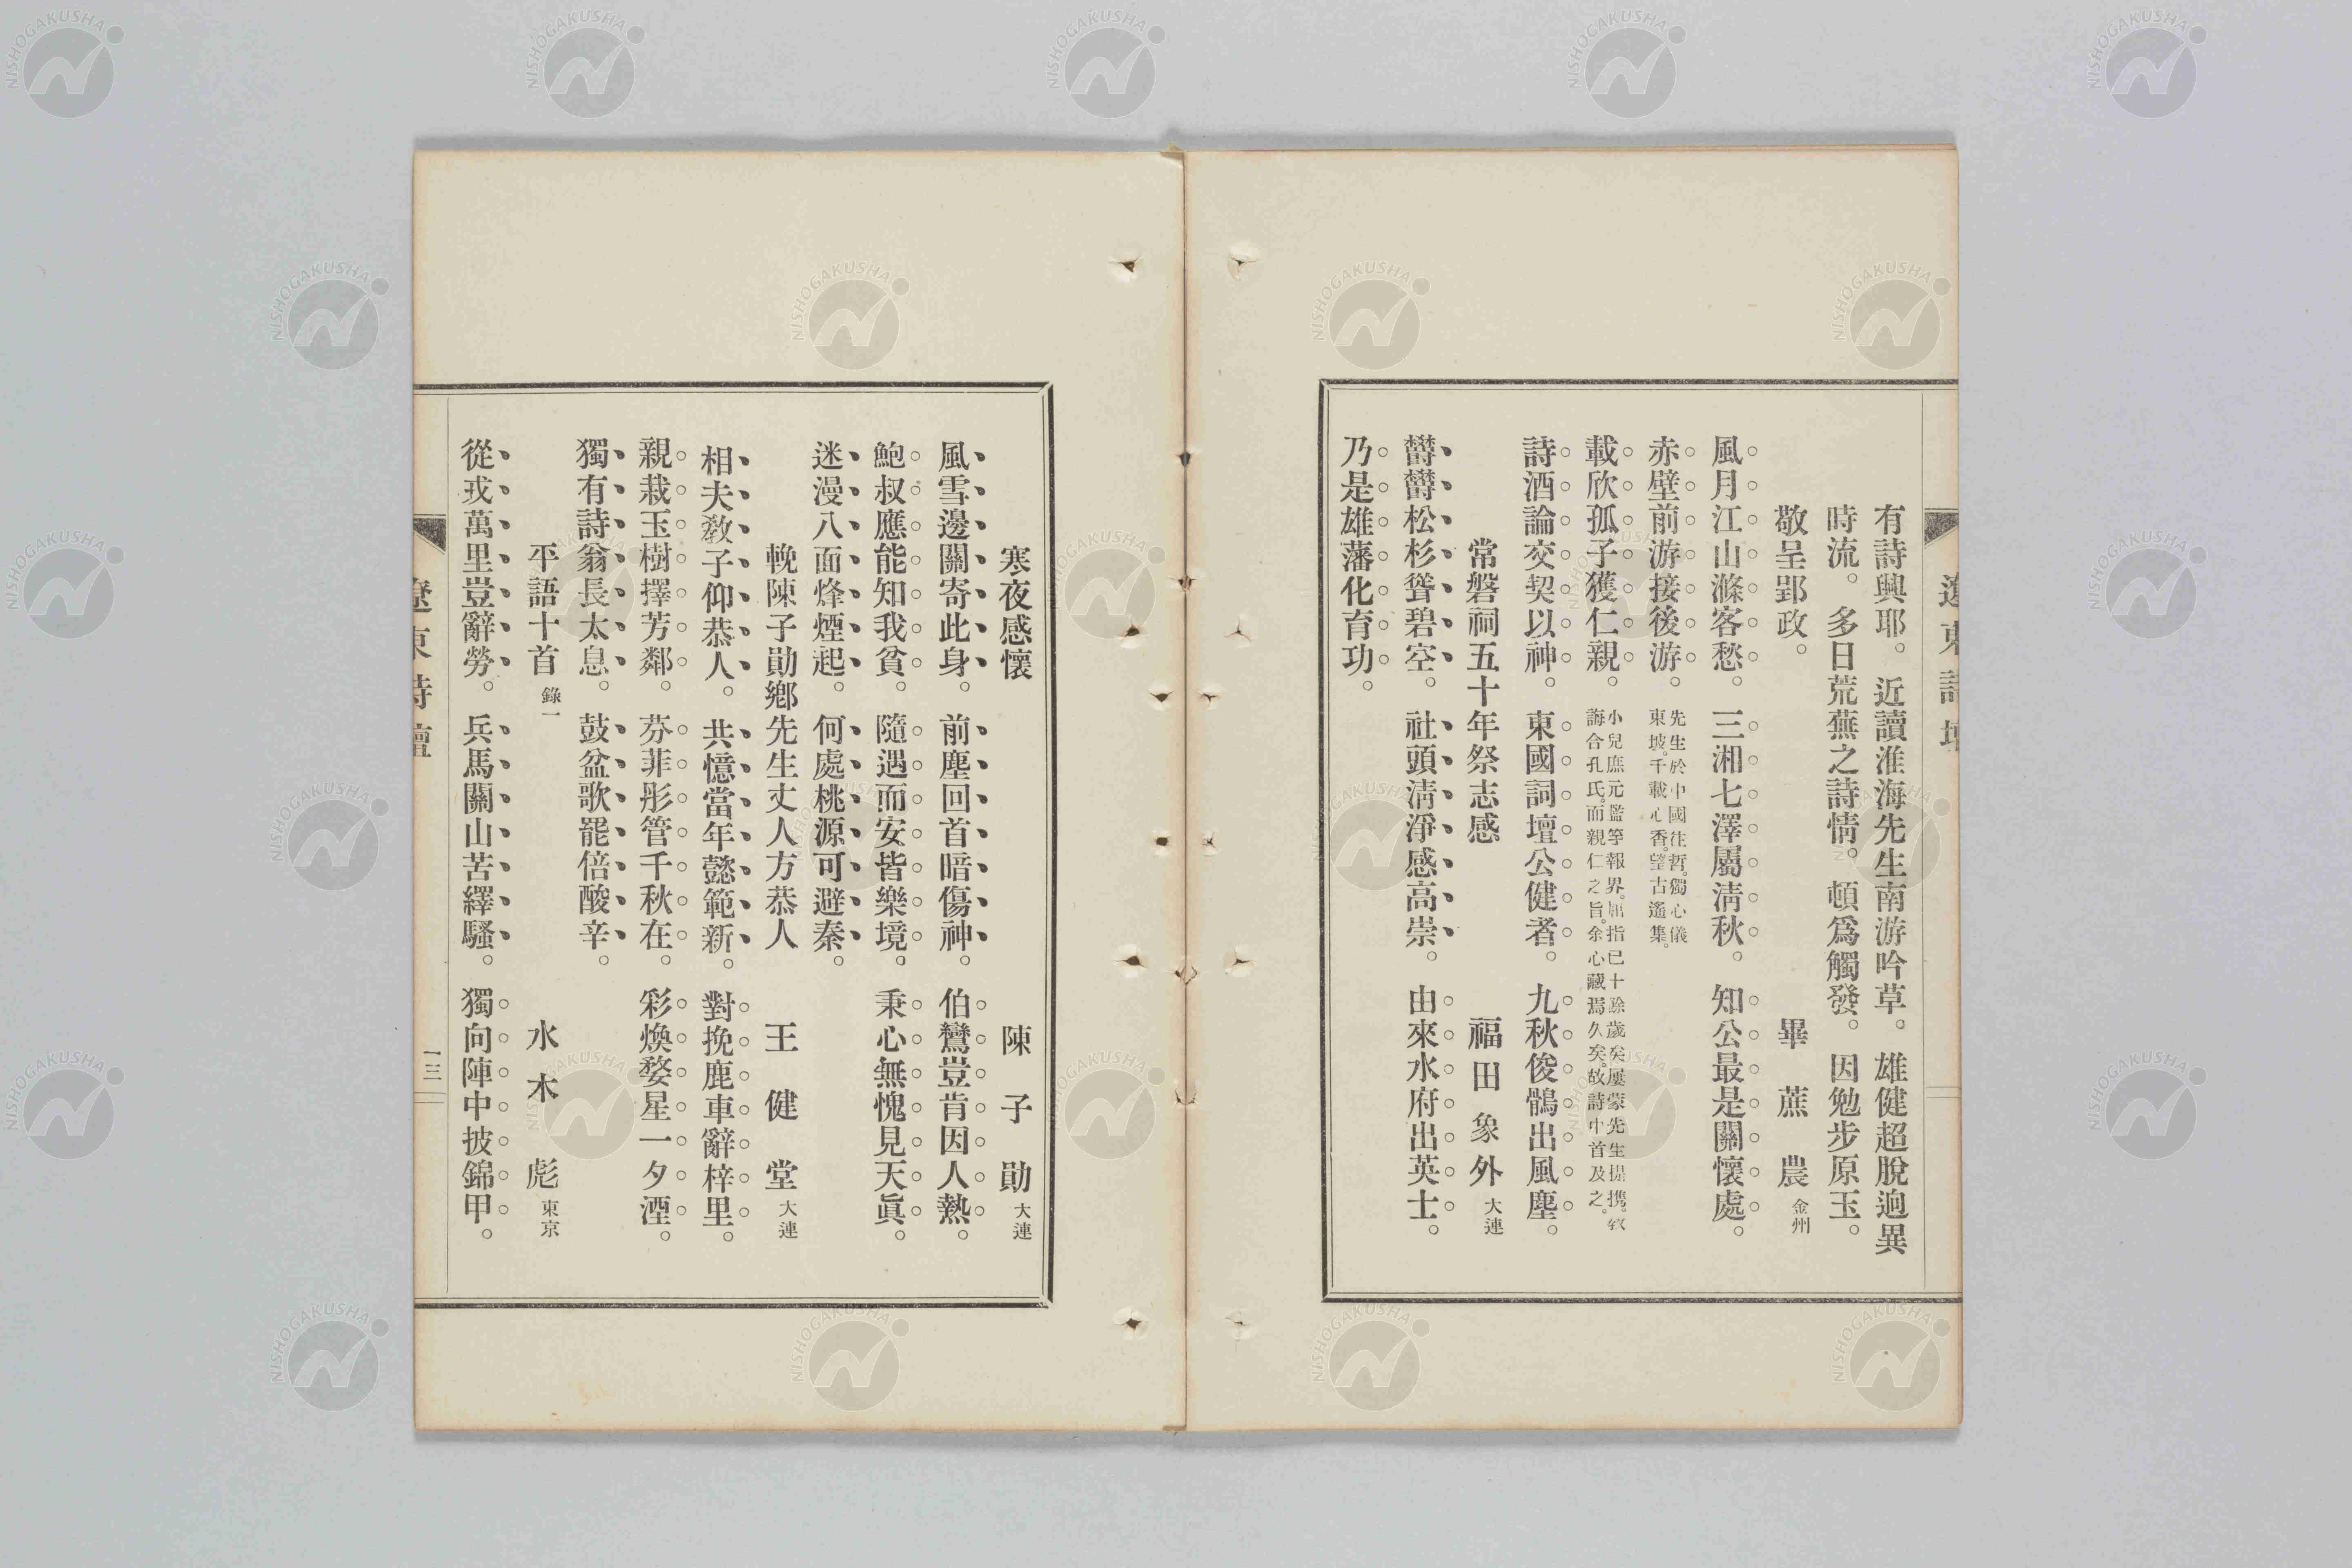 遼東詩壇
有詩興耶。近讀淮海先生南游吟草。雄健超脫逈異
時流。多日荒蕪之詩情。頓爲觸發。因勉步原玉。
敬呈郢政。　畢蔗農　金州
風月江山滌客愁。三湘七澤屬淸秋。知公最是關懷處。
赤壁前游接後游。先生於中國往哲。獨心儀
東坡。千載心香。望古遙集。
載欣孤子獲仁親。小兒庶元濫竽報界。屈指已十餘歲矣。屢蒙先生提携。敎
誨合孔氏。而親仁之旨。余心藏焉久矣。故詩中首及之。
詩酒論交契以神。東國詞壇公健者。九秋俊鶻出風塵。
常磐祠五十年祭志感　福田象外　大連
欝欝松杉聳碧空。社頭淸淨感高崇。由來水府出英士。
乃是雄藩化育功。
寒夜感懷　陳子勛　大連
風雪邊關寄此身。前塵回首暗傷神。伯鸞豈肯因人熱。
鮑叔應能知我貧。隨遇而安皆樂境。秉心無愧見天眞。
迷漫八面烽煙起。何處桃源可避秦。
輓陳子勛鄕先生丈人方恭人　王健堂　大連
相夫敎子仰恭人。共憶當年懿範新。對挽鹿車辭梓里。
親栽玉樹擇芳鄰。芬菲彤管千秋在。彩煥婺星一夕湮。
獨有詩翁長太息。鼓盆歌罷倍酸辛。
平語十首　錄一　水木彪　東京
從戎萬里豈辭勞。兵馬關山苦繹騷。獨向陣中披錦甲。
遼東詩壇
一三